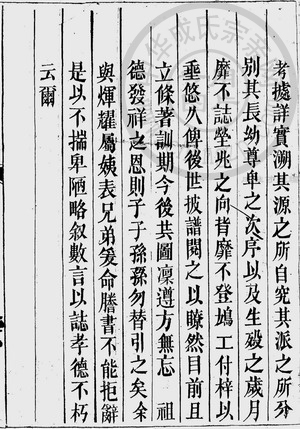 考據詳實溯其源之所自究其派之所分
別其長幼尊卑之次序以及生殁之歲月
靡不誌塋兆之向背靡不登鳩工付梓以
垂悠久俾後世披譜閱之以瞭然目前且
立條著訓期今後共圖凜遵方無忘 祖
德發祥之恩則子子孫孫勿替引之矣余
與煇耀屬姨表兄弟爰命謄書不能拒辭
是以不揣卑陋略叙數言以誌孝德不朽
云爾